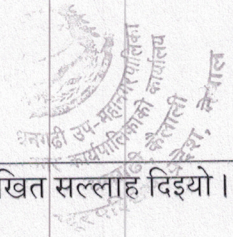 धनगढी उप-महानगरपालिका
कार्यपालिकाको कार्यालय
कैलाली
प्रदेश, नेपाल
खित सल्लाह दिइयो ।